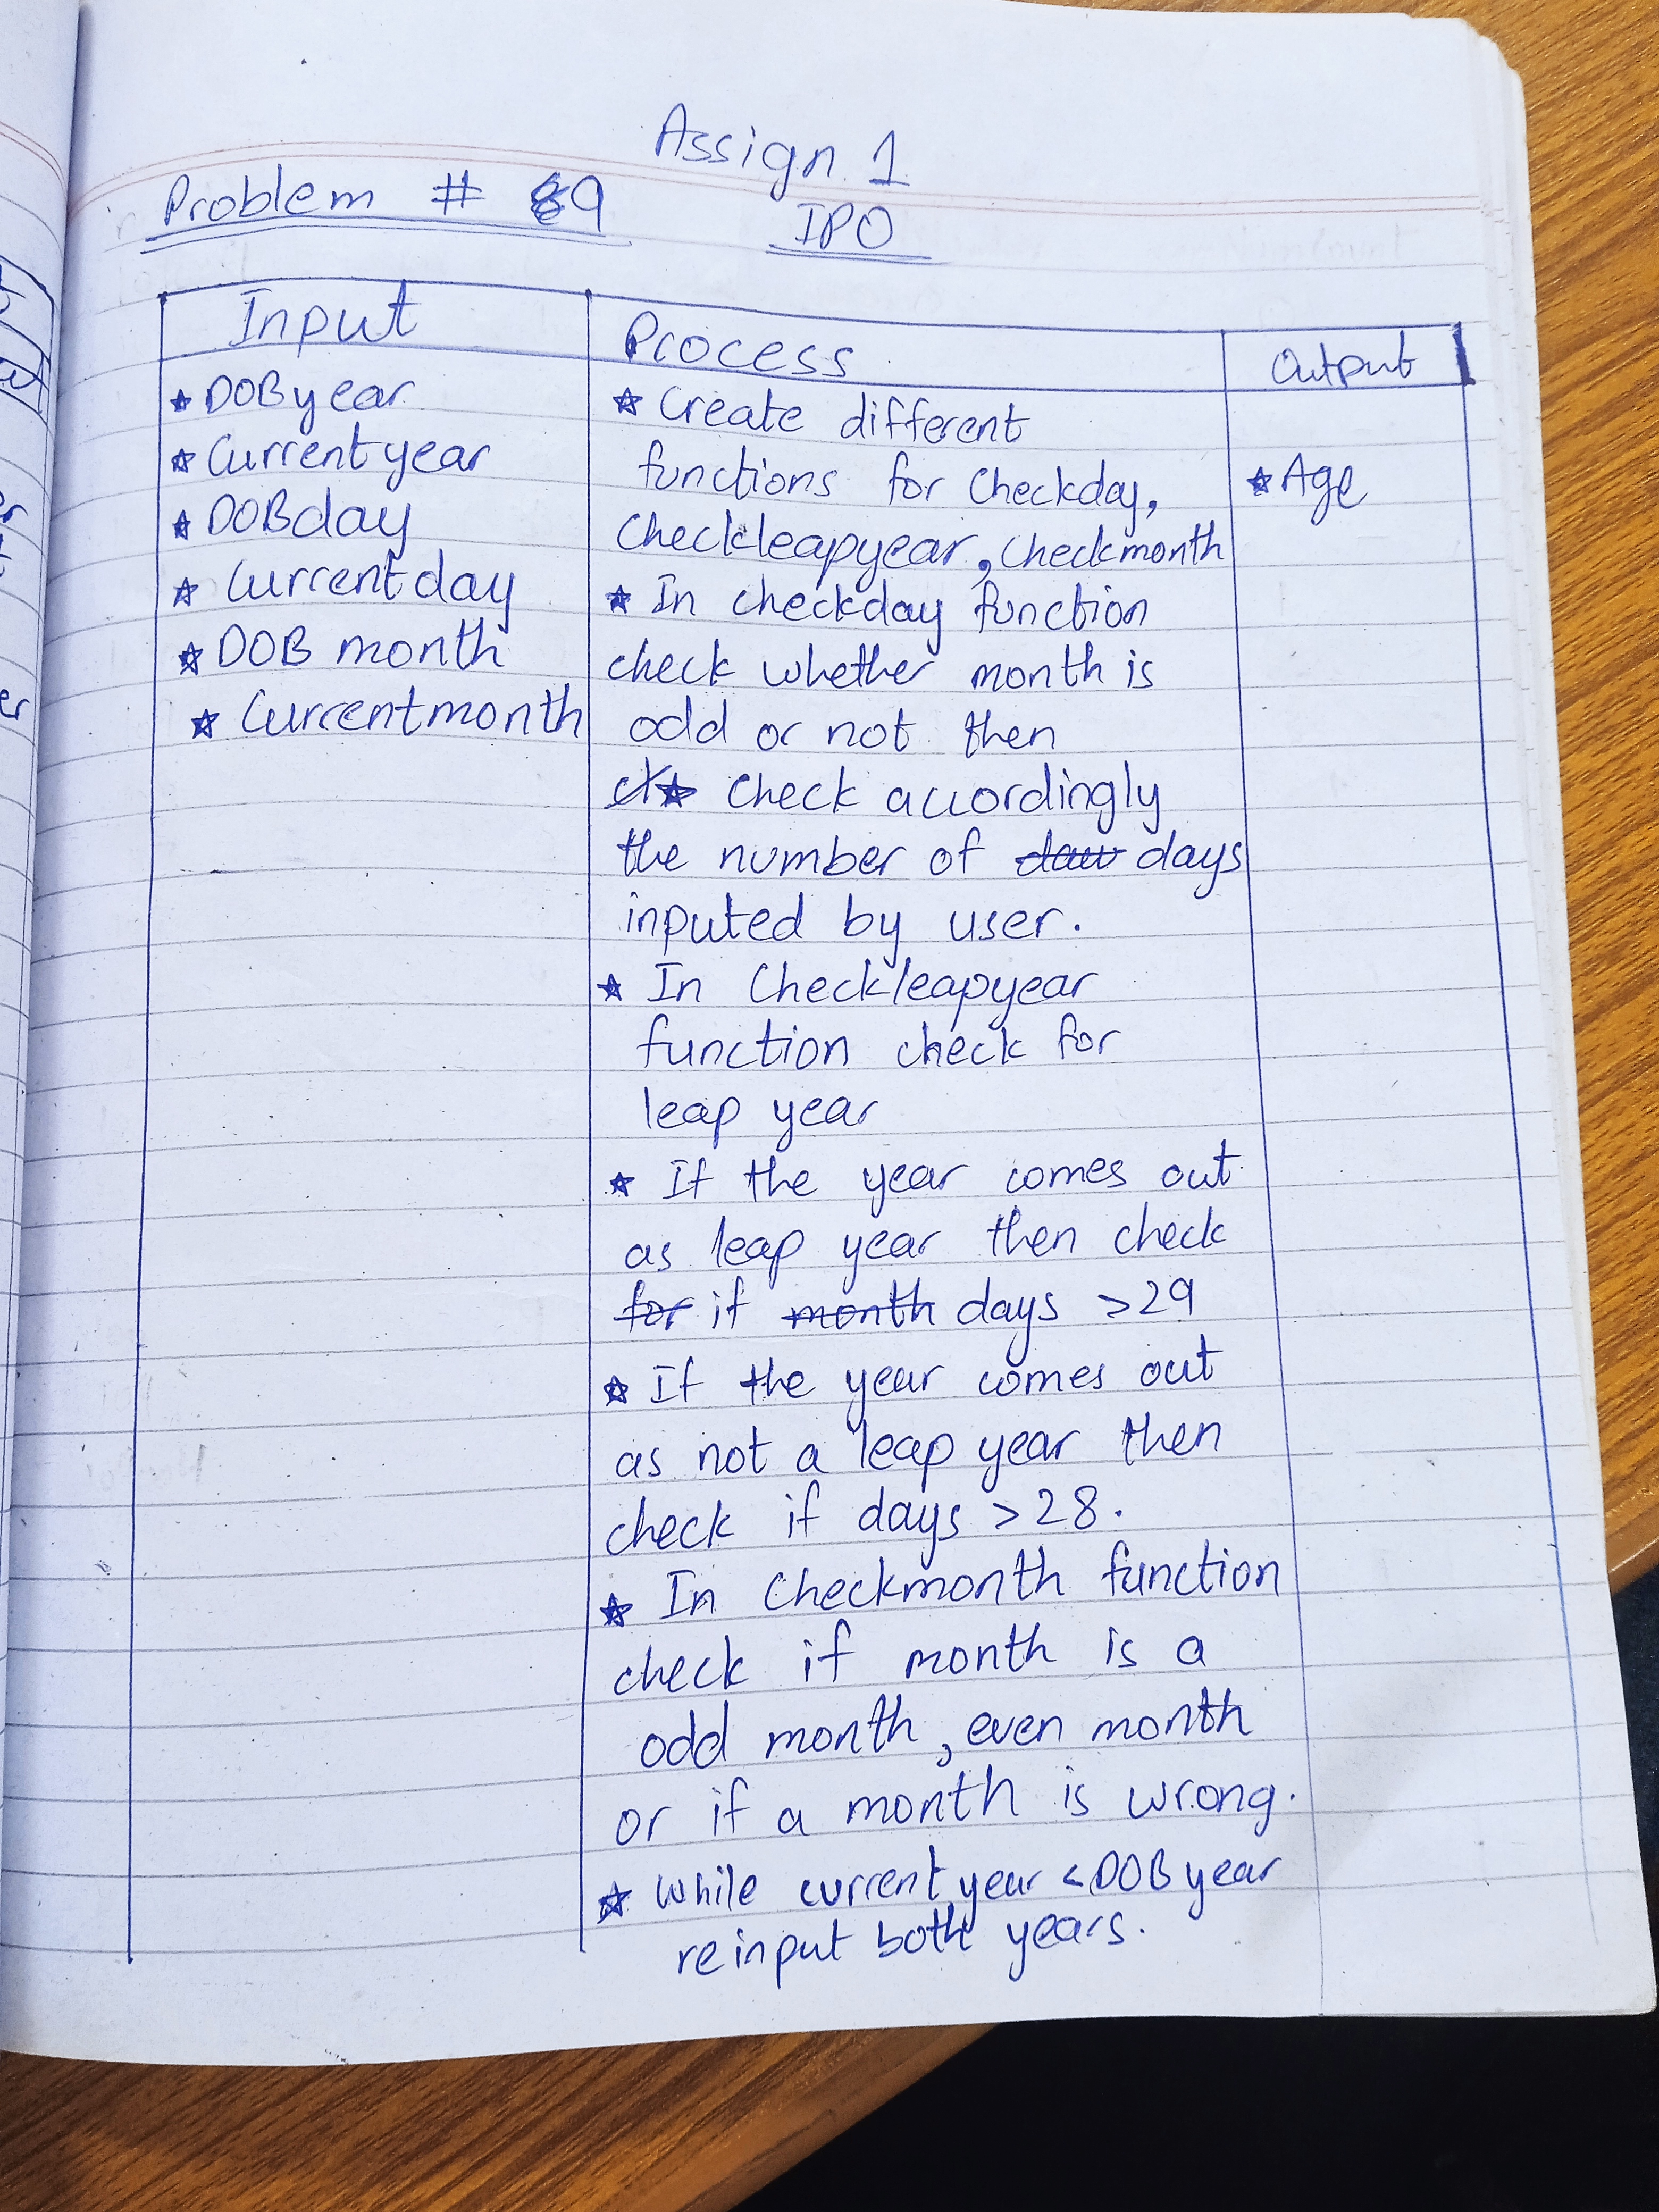 Assign 1
Problem # 9
IPO
Input
Process
Output
★ DOB year
★ Current year
★ DOB day
★ Current day
★ DOB month
★ Current month
★ Create different
functions for Checkday,
Checkleapyear, Checkmonth
★ In checkday function
check whether month is
odd or not then
★ Check accordingly
the number of days
inputed by user.
★ In Checkleapyear
function check for
leap year
★ If the year comes out
as leap year then check
for if month days >29
★ If the year comes out
as not a leap year then
check if days >28.
★ In Checkmonth function
check if month is a
odd month, even month
or if a month is wrong.
★ While current year < DOB year
reinput both years.
★ Age